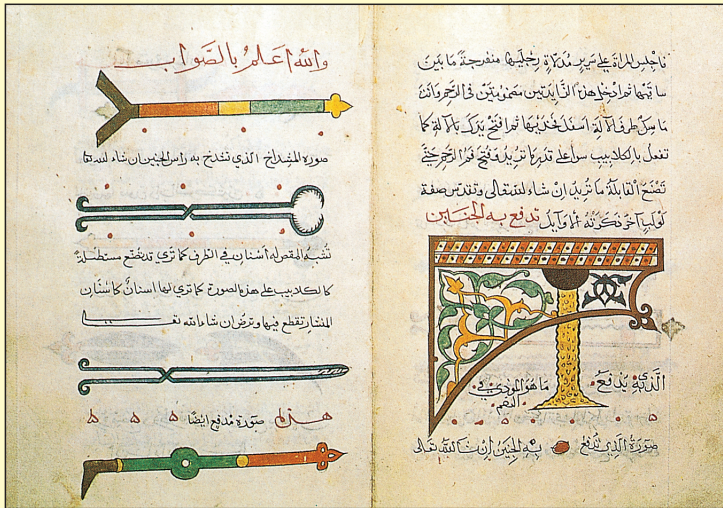 فاجلس المراة على سرير مدلاة رجليها منفرجة ما بين
ساقيها ثم ادخل هذا الزايدتين مضمومتين في الرحم وانت
ماسك طرف الآلة اسفل فخذيها ثم افتح يدك بالآلة كما
تفعل بالكلاليب سوا على قدر ما تريد فتح فم الرحم حتى
تصنع القابلة ما تريد ان شاء الله تعالى صفة
لولب آخر ذكرته الاوايل تدفع به الجنين
الذي يدفع ما هو المودي في
صورة الذي تدفع به الجنين ان شا الله تعالى
والله اعلم بالصواب
صورة المشداخ الذي تشدخ به راس الجنين ان شاء الله تعا
تشبه المقص له اسنان في الطرف كما تري قد تصنع مستطيلة
كالكلاليب على هذه الصورة كما تري لها اسنان كاسنان
المنشار تقطع فيها وترض ان شاء الله تعا
هذه صورة مدفع ايضا